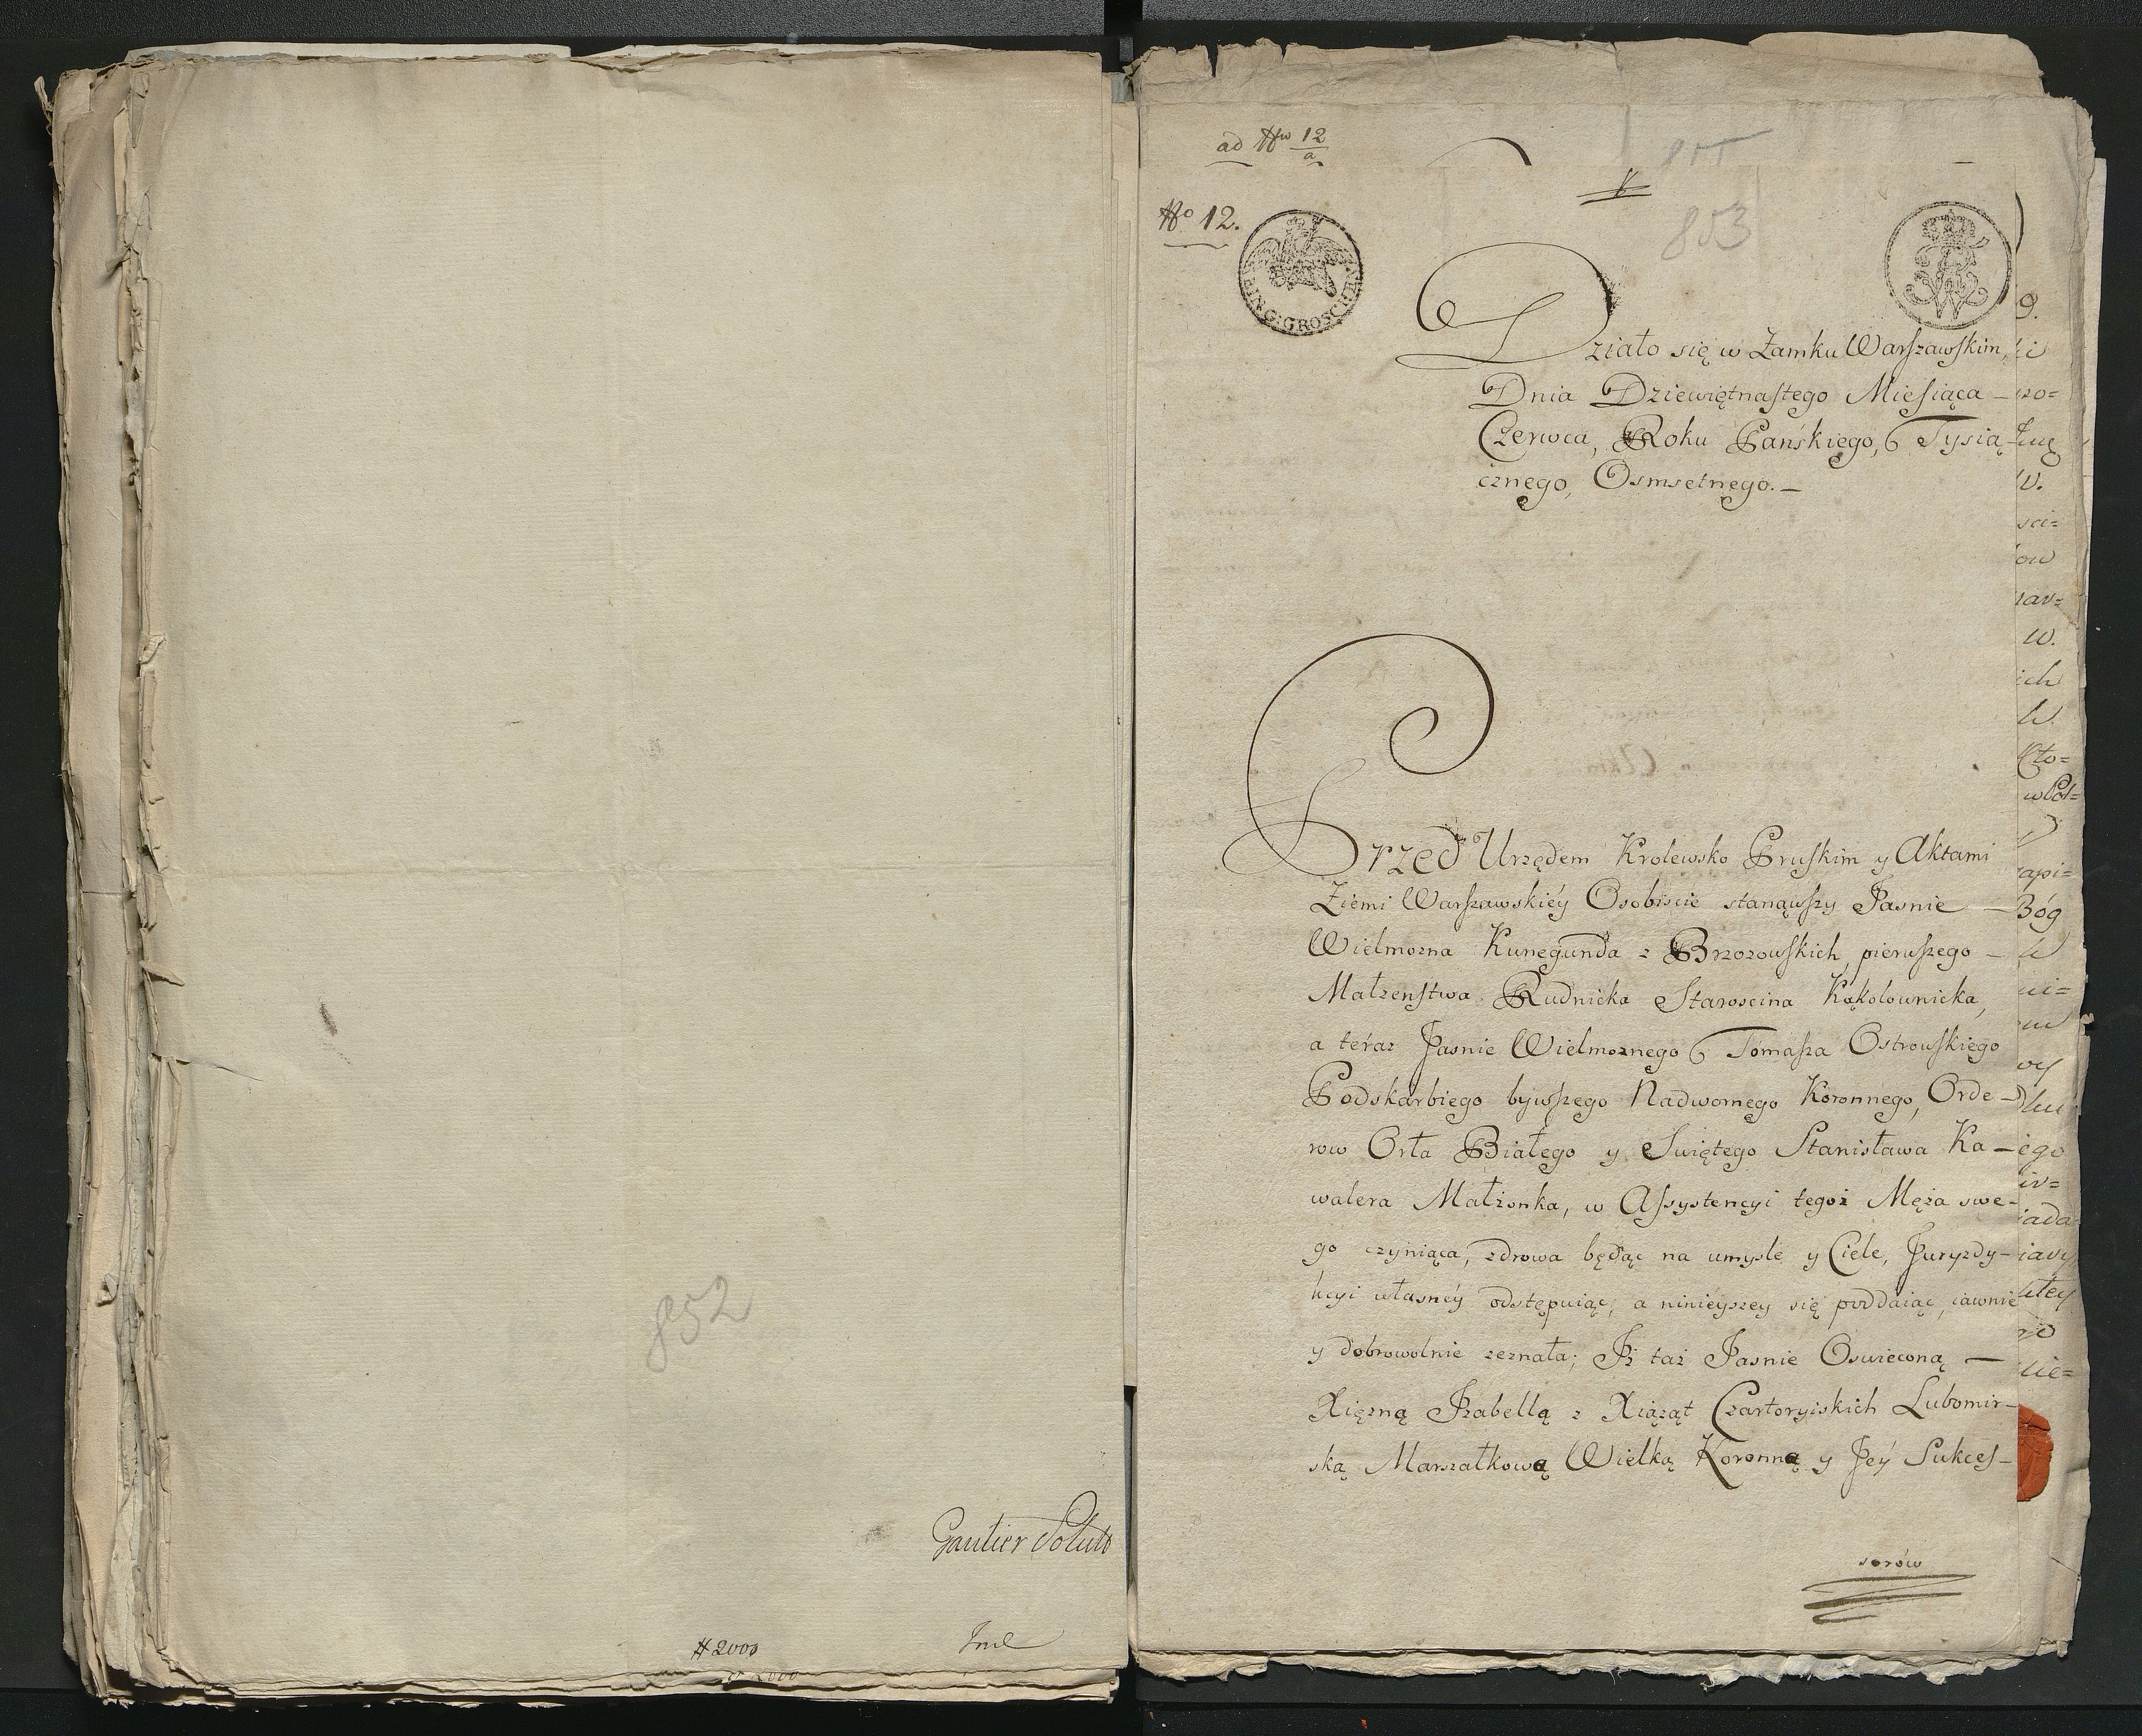 852
Gautier
# 2000
ad Nro 12/a
No 12.
853
G. GROSCHEN
Działo się w Zamku Warszawskim,
Dnia Dziewiętnastego Miesiąca –
Czerwca, Roku Pańskiego, Tysią-
cznego, Osmsetnego. –
Przed Urzędem Krolewsko Pruskim y Aktami
Ziemi Warszawskiéy Osobiscie stanąwszy Jasnie –
Wielmozna Kunegunda z Brzozowskich, pierwszego –
Małzenstwa Rudnicka Staroscina Kąkolownicka,
a téraz Jasnie Wielmoznego Tomasza Ostrowskiego
Podskarbiego bywszego Nadwornego Koronnego, Orde-
row Orła Białego y Swiętego Stanisława Ka-
walera Małżonka, w Assystencyi tegoż Męża swe-
go czyniąca, zdrowa będąc na umysle y Ciele, Juryzdy-
kcyi własnéy odstępuiąc, a ninieyszey się poddaiąc, iawnie
y dobrowolnie zeznała; Iż taż Jasnie Oswieconą –
Xięzną Izabellą z Xiążąt Czartoryiskich Lubomir-
ską Marszałkową Wielką Koronną y Jéy Sukces-
sorów
9.
w.
ich
Bóg